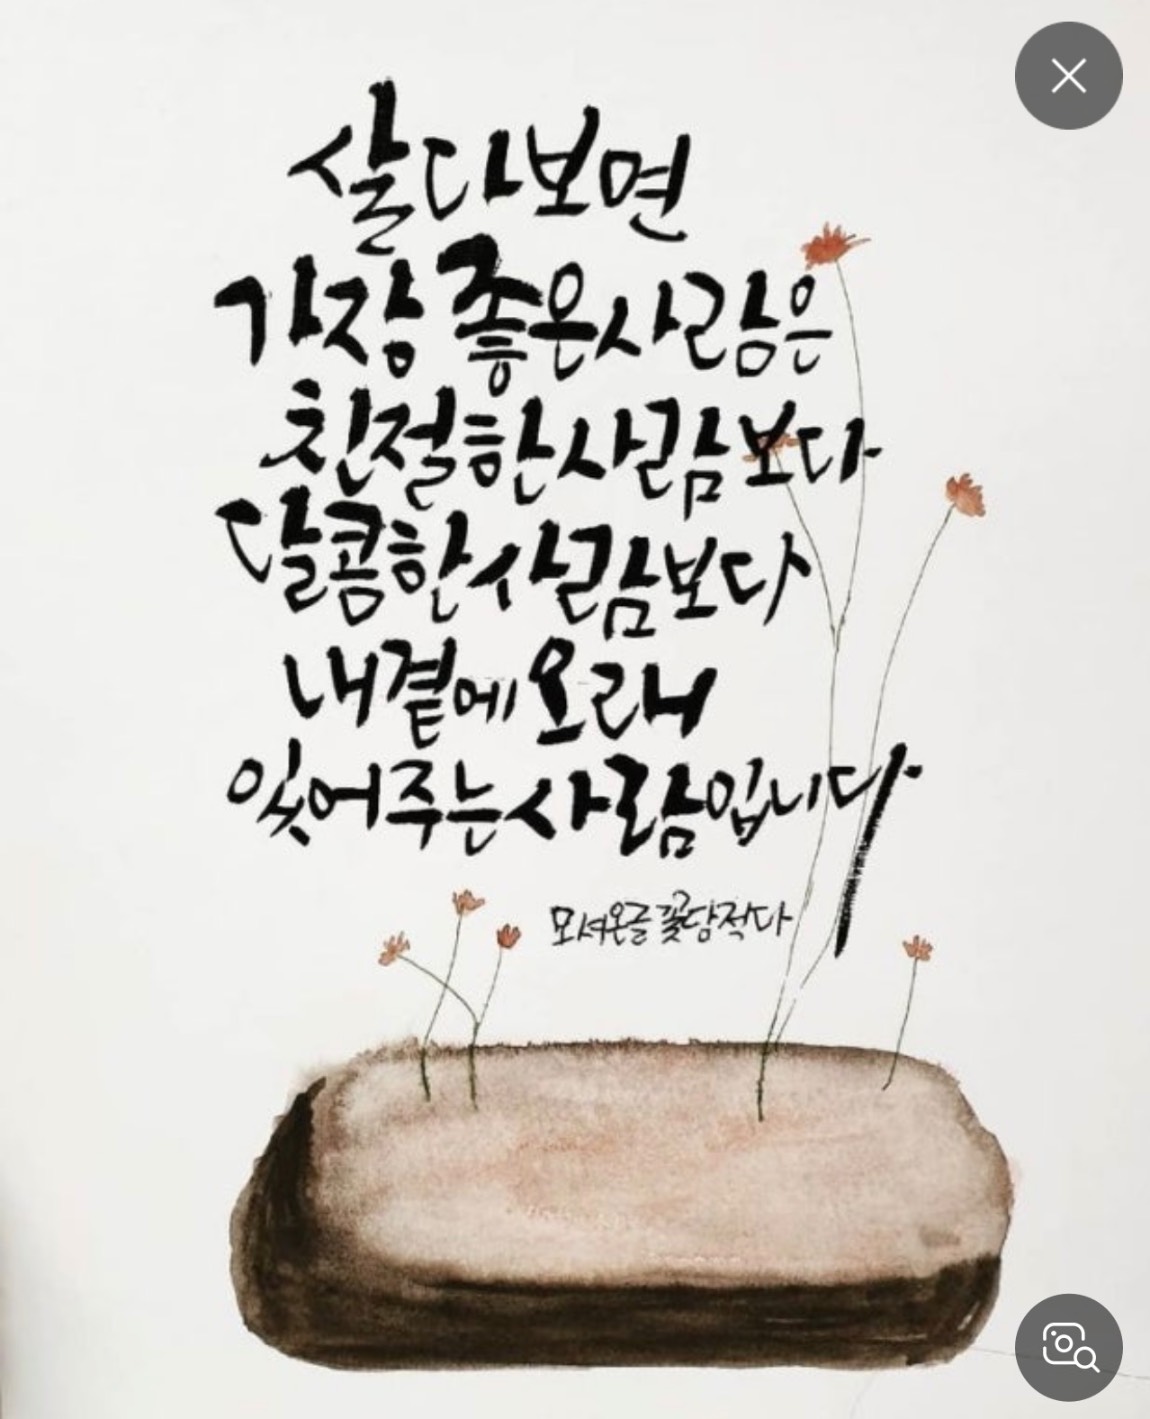 살다보면
가장 좋은사람은
친절한사람보다
달콤한사람보다
내곁에오래
있어주는사람입니다
모셔온글 꽃담적다